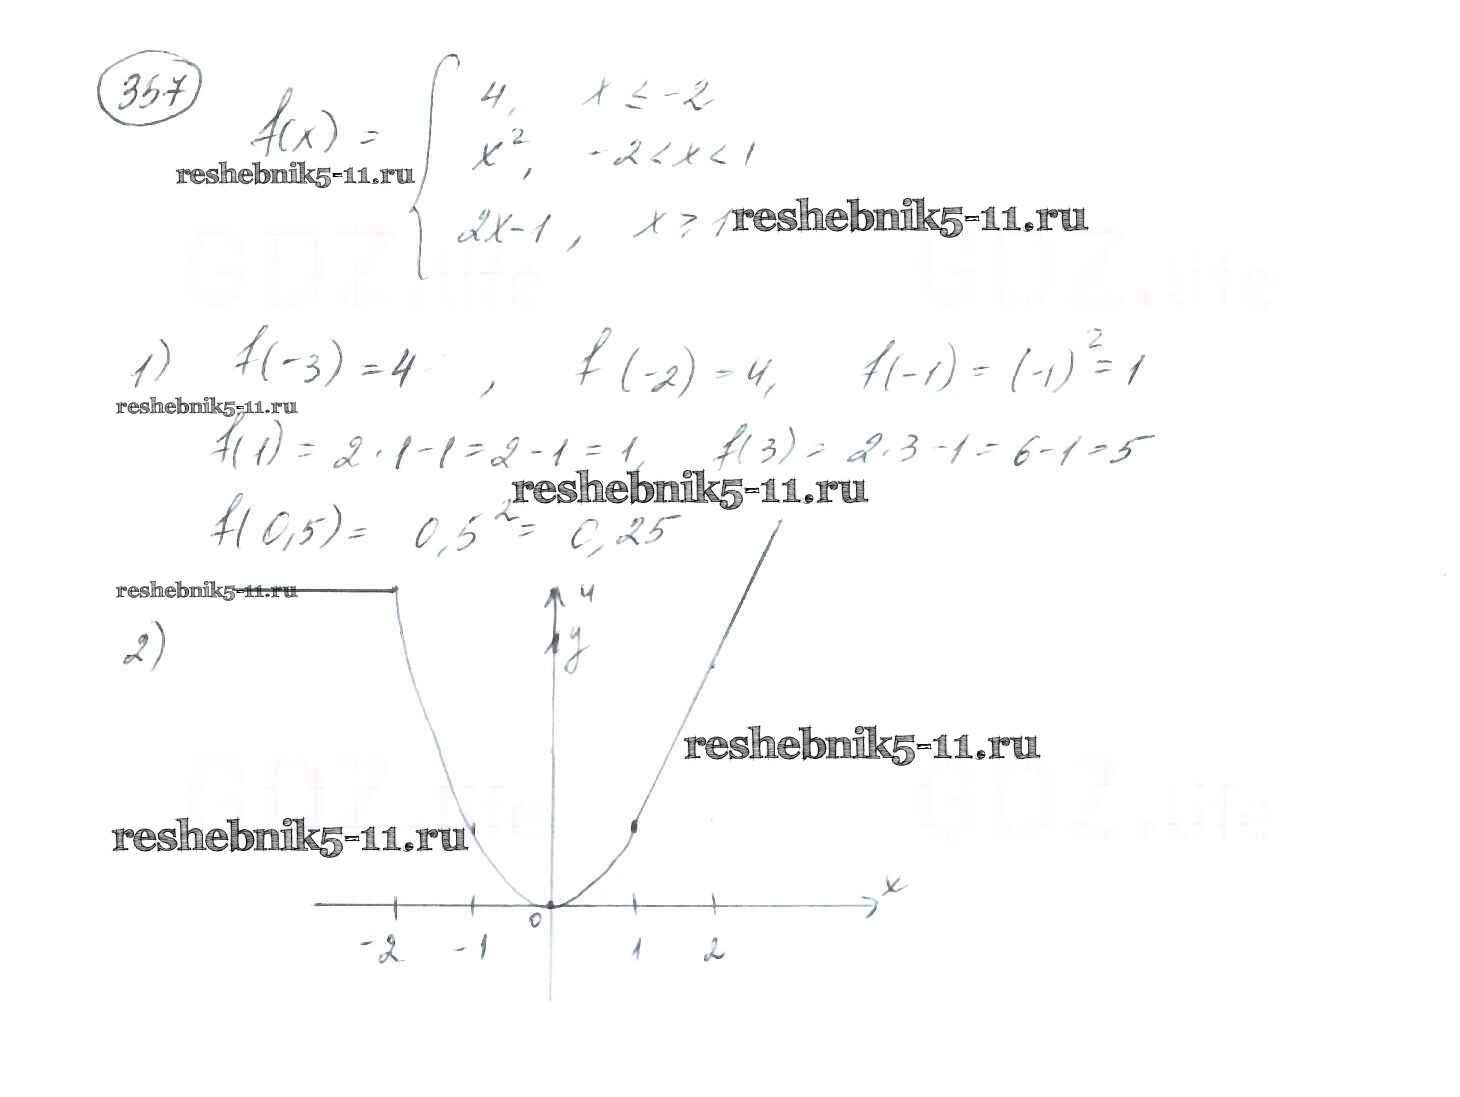 357
f(x) = { 4, x ≤ -2
x², -2 < x < 1
2x-1, x ≥ 1
reshebnik5-11.ru
reshebnik5-11.ru
GDZ.life GDZ.life
1) f(-3) = 4, f(-2) = 4, f(-1) = (-1)² = 1
reshebnik5-11.ru
f(1) = 2·1-1 = 2-1 = 1, f(3) = 2·3-1 = 6-1 = 5
reshebnik5-11.ru
f(0,5) = 0,5² = 0,25
reshebnik5-11.ru
4
y
2)
reshebnik5-11.ru
GDZ.life GDZ.life
reshebnik5-11.ru
x
0
-2 -1 1 2